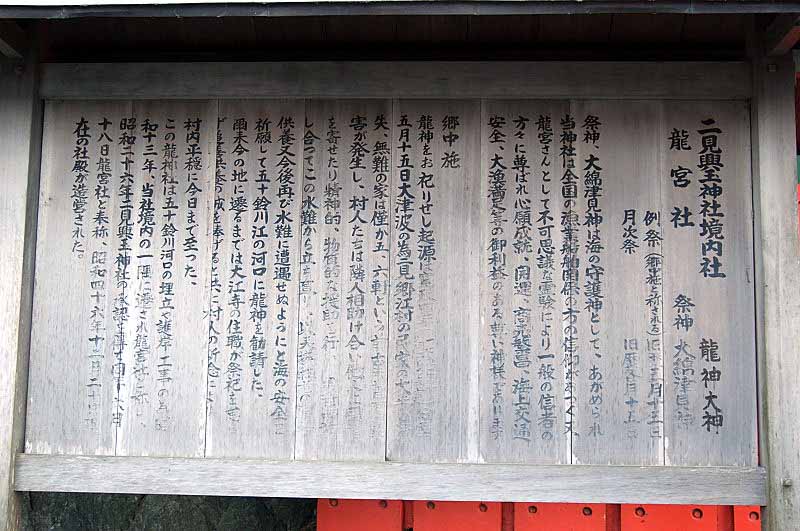 二見興玉神社境内社
龍宮社
龍神大神
祭神 大綿津見神
例祭(郷中施と称される)旧五月十五日
月次祭 旧暦毎月十五日
祭神、大綿津見神は海の守護神として、あがめられ
当神社は全国の漁業船舶関係の方の信仰があつく又、
龍宮さんとして不可思議な霊験により一般の信者の
方々に尊ばれ心願成就、開運、商売繁昌、海上交通
安全、大漁満足等の御利益のある尊い神様であります
郷中施
龍神をお祀りせし起源は
五月十五日大津波の為二見郷江村の民家の大半
失、無難の家は僅か五、六軒という
害が発生し、村人たちは隣人相助け合い
を寄せたり精神的、物質的な援助を行
し合ってこの水難から立ち直り
供養又今後再び水難に遭遇せぬようにと海の安全
祈願して五十鈴川江の河口に龍神を勧請した。
爾来今の地に遷るまでは大江寺の住職が祭祀を
の誠を捧げると共に村人の祈念により
村内平穏に今日まで至った。
この龍神社は五十鈴川河口の埋立や護岸工事の為昭
和十三年、当社境内の一隅に遷され龍宮社と称し、
昭和二十六年二見興玉神社の承認を得て同十六月
十八日龍宮社と奉称、昭和四十六年十二月二十
在の社殿が造営された。